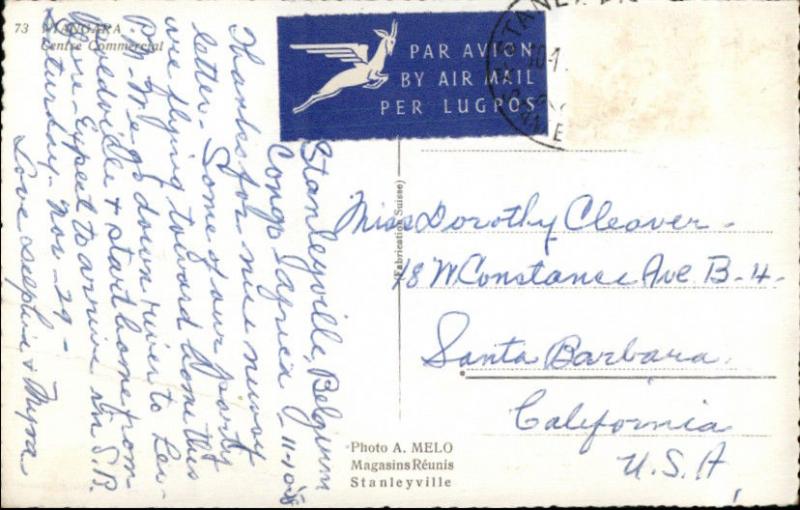 73 NIANGARA
Centre Commercial
PAR AVION
BY AIR MAIL
PER LUGPOS
Stanleyville, Belgium
Congo Africa 11-10-58
Thanks for nice newsy
letter. Some of our party
are flying toward home this
P.M. We go down river to Leo-
poldville & start home from
there. Expect to arrive in S.B.
Saturday. Nov - 29 -
Love & Myra
(Fabrication Suisse)
Miss Dorothy Cleaver.
18 W Constance Ave. B-4-
Santa Barbara.
California
U.S.A,
Photo A. MELO
Magasins Réunis
Stanleyville